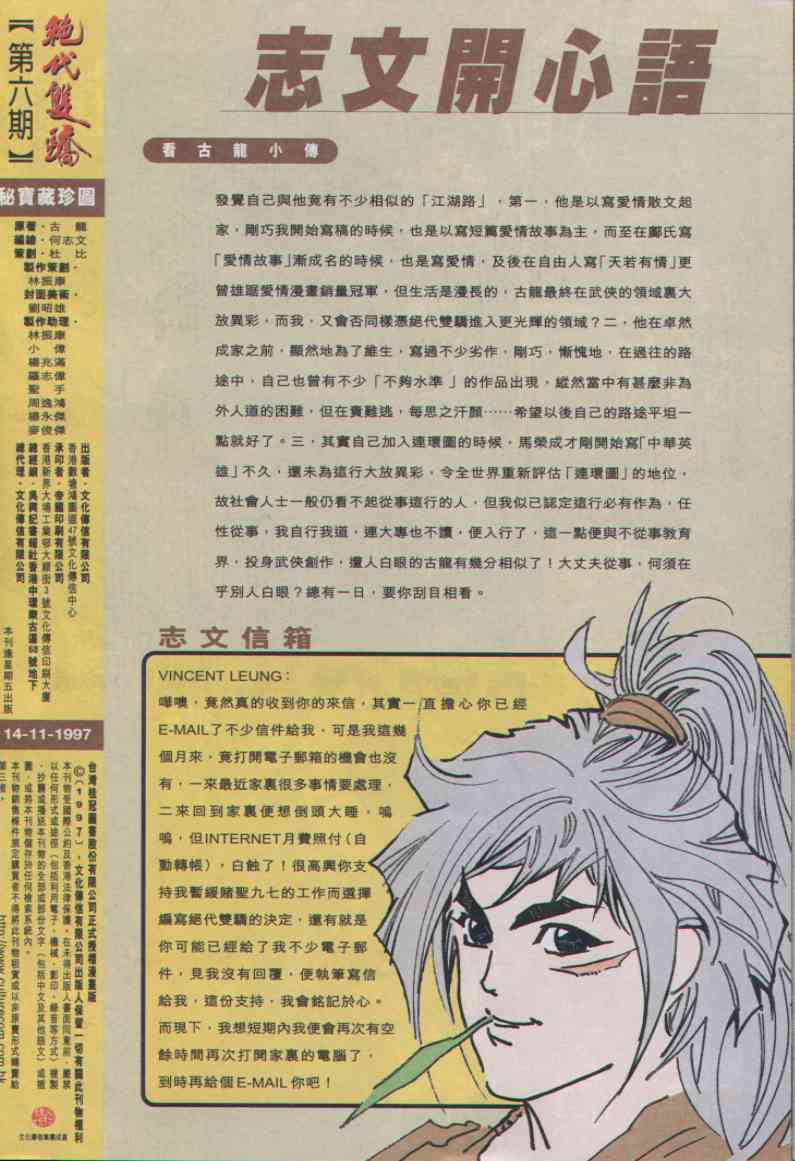 絕代雙驕
【第六期】
秘寶藏珍圖
原著·古龍
編繪·何志文
策劃·杜比
製作策劃·
林振康
封面美術·
劉昭雄
製作助理·
林振康
小偉
楊兆滿
羅志偉
聖手
周逸鴻
楊永傑
麥俊傑
出版者·文化傳信有限公司
香港觀塘鴻圖道47號文化傳信中心
承印者·帝國印刷有限公司
香港新界大埔工業邨大順街3號文化傳信印刷大廈
總經銷·吳興記書報社香港中環樂古道68號地下
總代理·文化傳信有限公司
本刊逢星期五出版
14-11-1997
台灣桂冠圖書股份有限公司正式授權漫畫版
©(1997),文化傳信有限公司出版人保留一切有關此刊物權利
本刊物受國際公約及香港法律保護。在未得出版人書面同意前,嚴禁
以任何形式或途徑(包括利用電子、機械、影印、錄音等方式)複製
、抄襲或播送本刊物的全部或部份文字(包括中文及其他語文)或插
圖,或將本刊物儲存於任何檢索系統內。
本刊物銷售條件規定購買者不得將此刊物租賃或以非原賣形式轉賣給
第三者。
http://www.culturecom.com.hk
文化傳信集團成員
志文開心語
看古龍小傳
發覺自己與他竟有不少相似的「江湖路」,第一,他是以寫愛情散文起
家,剛巧我開始寫稿的時候,也是以寫短篇愛情故事為主,而至在鄺氏寫
「愛情故事」漸成名的時候,也是寫愛情,及後在自由人寫「天若有情」更
曾雄踞愛情漫畫銷量冠軍,但生活是漫長的,古龍最終在武俠的領域裏大
放異彩,而我,又會否同樣憑絕代雙驕進入更光輝的領域?二,他在卓然
成家之前,顯然地為了維生,寫過不少劣作,剛巧,慚愧地,在過往的路
途中,自己也曾有不少「不夠水準 」的作品出現,縱然當中有甚麼非為
外人道的困難,但在責難逃,每思之汗顏……希望以後自己的路途平坦一
點就好了。三,其實自己加入連環圖的時候,馬榮成才剛開始寫「中華英
雄」不久,還未為這行大放異彩,令全世界重新評估「連環圖」的地位,
故社會人士一般仍看不起從事這行的人,但我似已認定這行必有作為,任
性從事,我自行我道,連大專也不讀,便入行了,這一點便與不從事教育
界,投身武俠創作,遭人白眼的古龍有幾分相似了!大丈夫從事,何須在
乎別人白眼?總有一日,要你刮目相看。
志文信箱
VINCENT LEUNG:
嘩噢,竟然真的收到你的來信,其實一直擔心你已經
E-MAIL了不少信件給我,可是我這幾
個月來,竟打開電子郵箱的機會也沒
有,一來最近家裏很多事情要處理,
二來回到家裏便想倒頭大睡,嗚
嗚,但INTERNET月費照付(自
動轉帳),白蝕了!很高興你支
持我暫緩賭聖九七的工作而選擇
編寫絕代雙驕的決定,還有就是
你可能已經給了我不少電子郵
件,見我沒有回覆,便執筆寫信
給我,這份支持,我會銘記於心。
而現下,我想短期內我便會再次有空
餘時間再次打開家裏的電腦了,
到時再給個E-MAIL你吧!